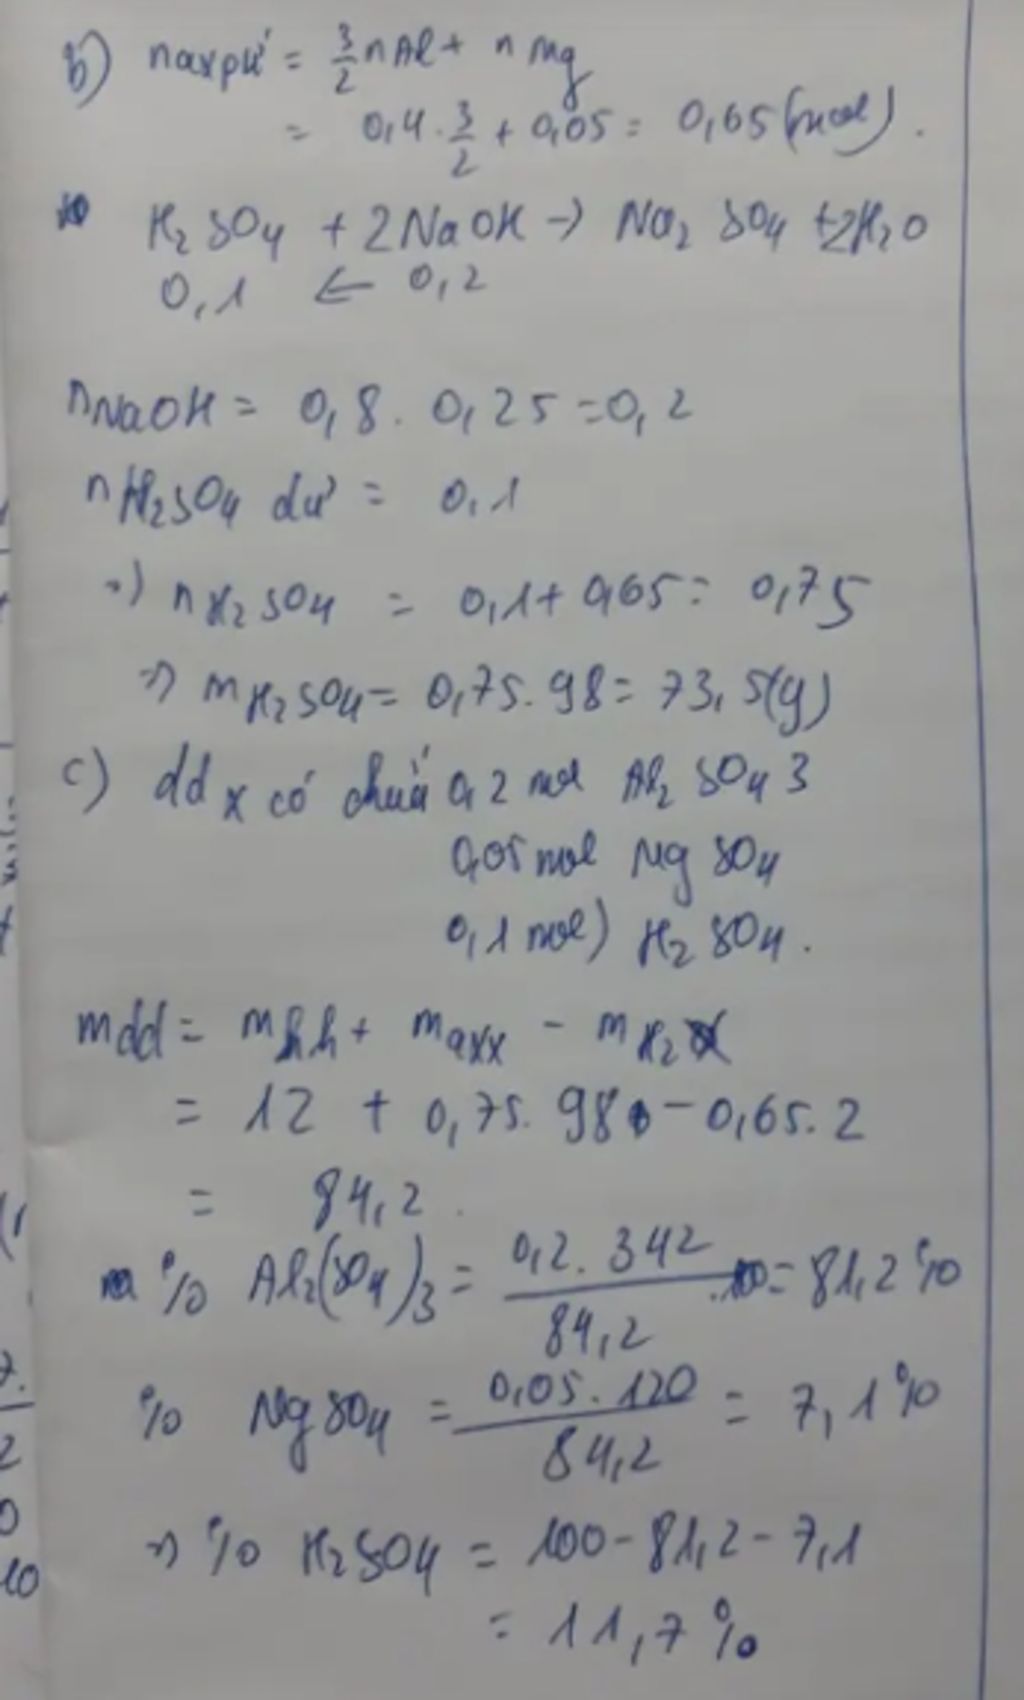 b) naxpứ = 3/2 nAl + nMg
= 0,4 . 3/2 + 0,05 = 0,65 (mol).
H2SO4 + 2NaOH → Na2SO4 + 2H2O
0,1 ← 0,2
nNaOH = 0,8 . 0,25 = 0,2
nH2SO4 dư = 0,1
=) nH2SO4 = 0,1 + 0,65 = 0,75
=) mH2SO4 = 0,75 . 98 = 73,5(g)
c) dd x có chứa 0,2 mol Al2SO4 3
0,05 mol MgSO4
0,1 mol) H2SO4.
mdd = mhh + maxx - mH2
= 12 + 0,75 . 98 - 0,65 . 2
= 84,2.
% Al2(SO4)3 = 0,2 . 342 / 84,2 .100 = 81,2%
% MgSO4 = 0,05 . 120 / 84,2 = 7,1%
=) % H2SO4 = 100 - 81,2 - 7,1
= 11,7%